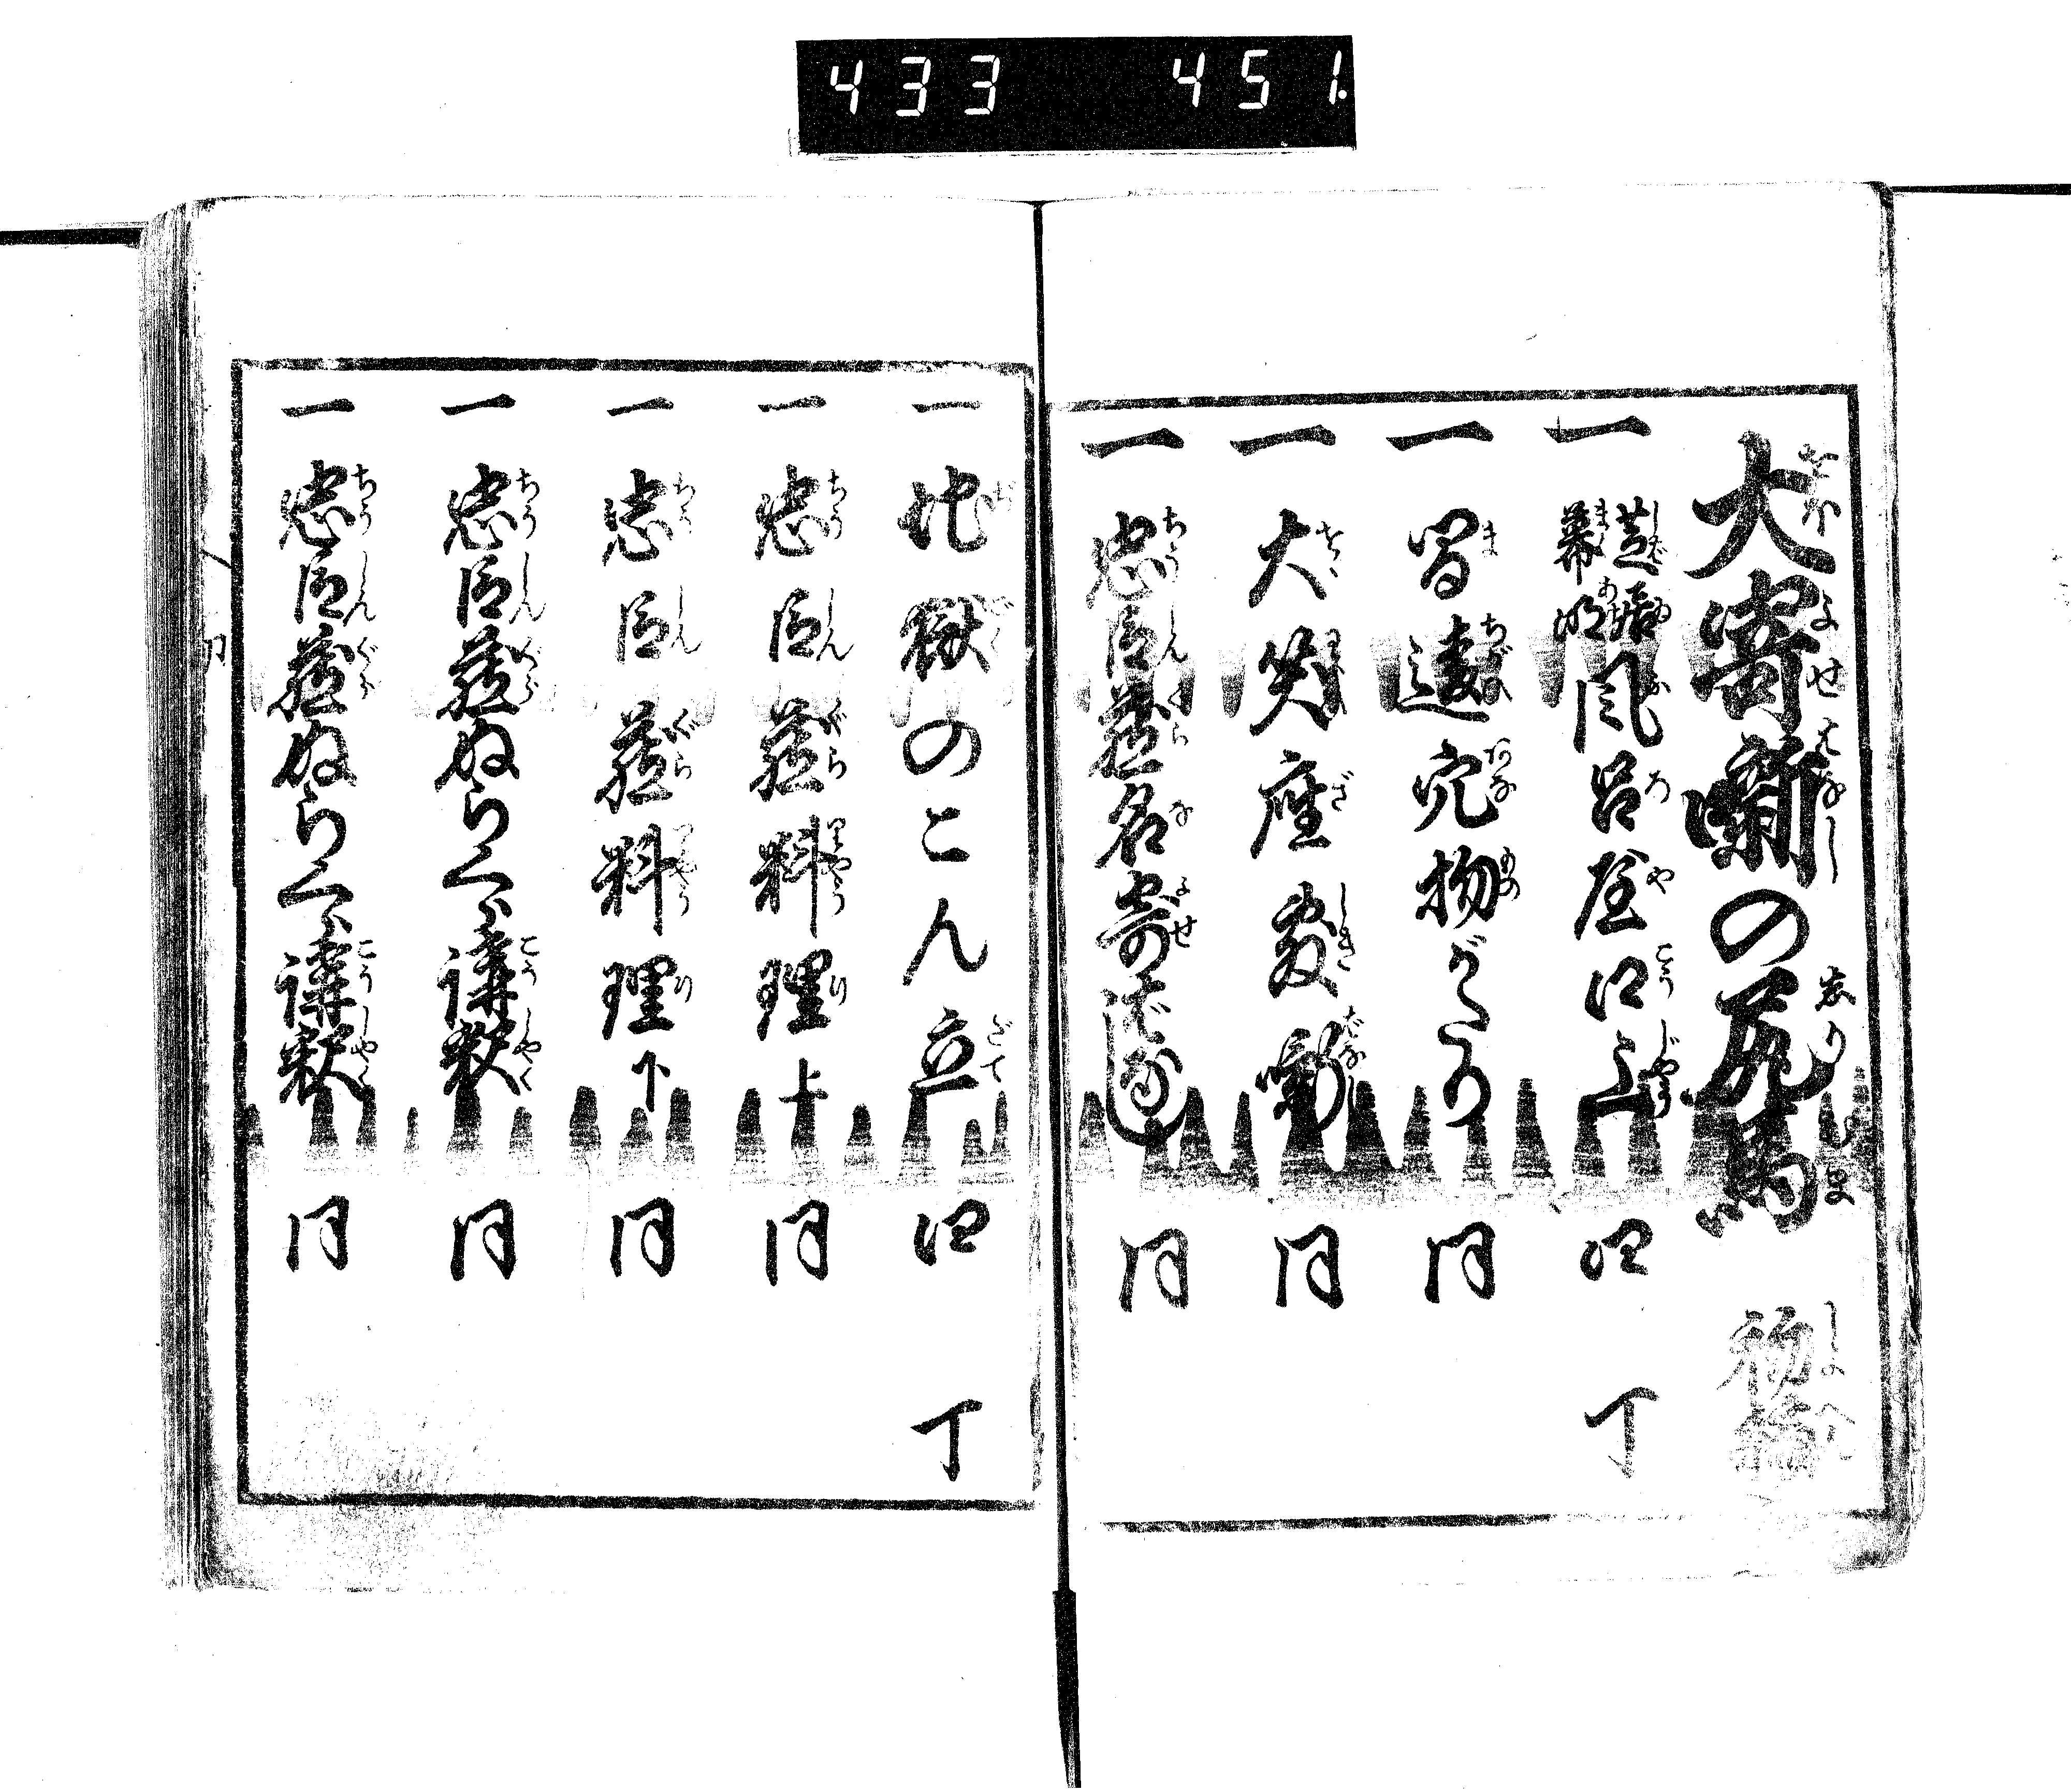 433 451
大寄噺の尻馬 初編
一 芝居幕明風呂屋口上 四丁
一 間違穴物がたり 同
一 大笑座敷噺 同
一 忠臣蔵名寄 同
一 地獄のこん立 四丁
一 忠臣蔵料理上 同
一 忠臣蔵料理下 同
一 忠臣蔵ぬらくら講釈 同
一 忠臣蔵ぬらくら講釈 同